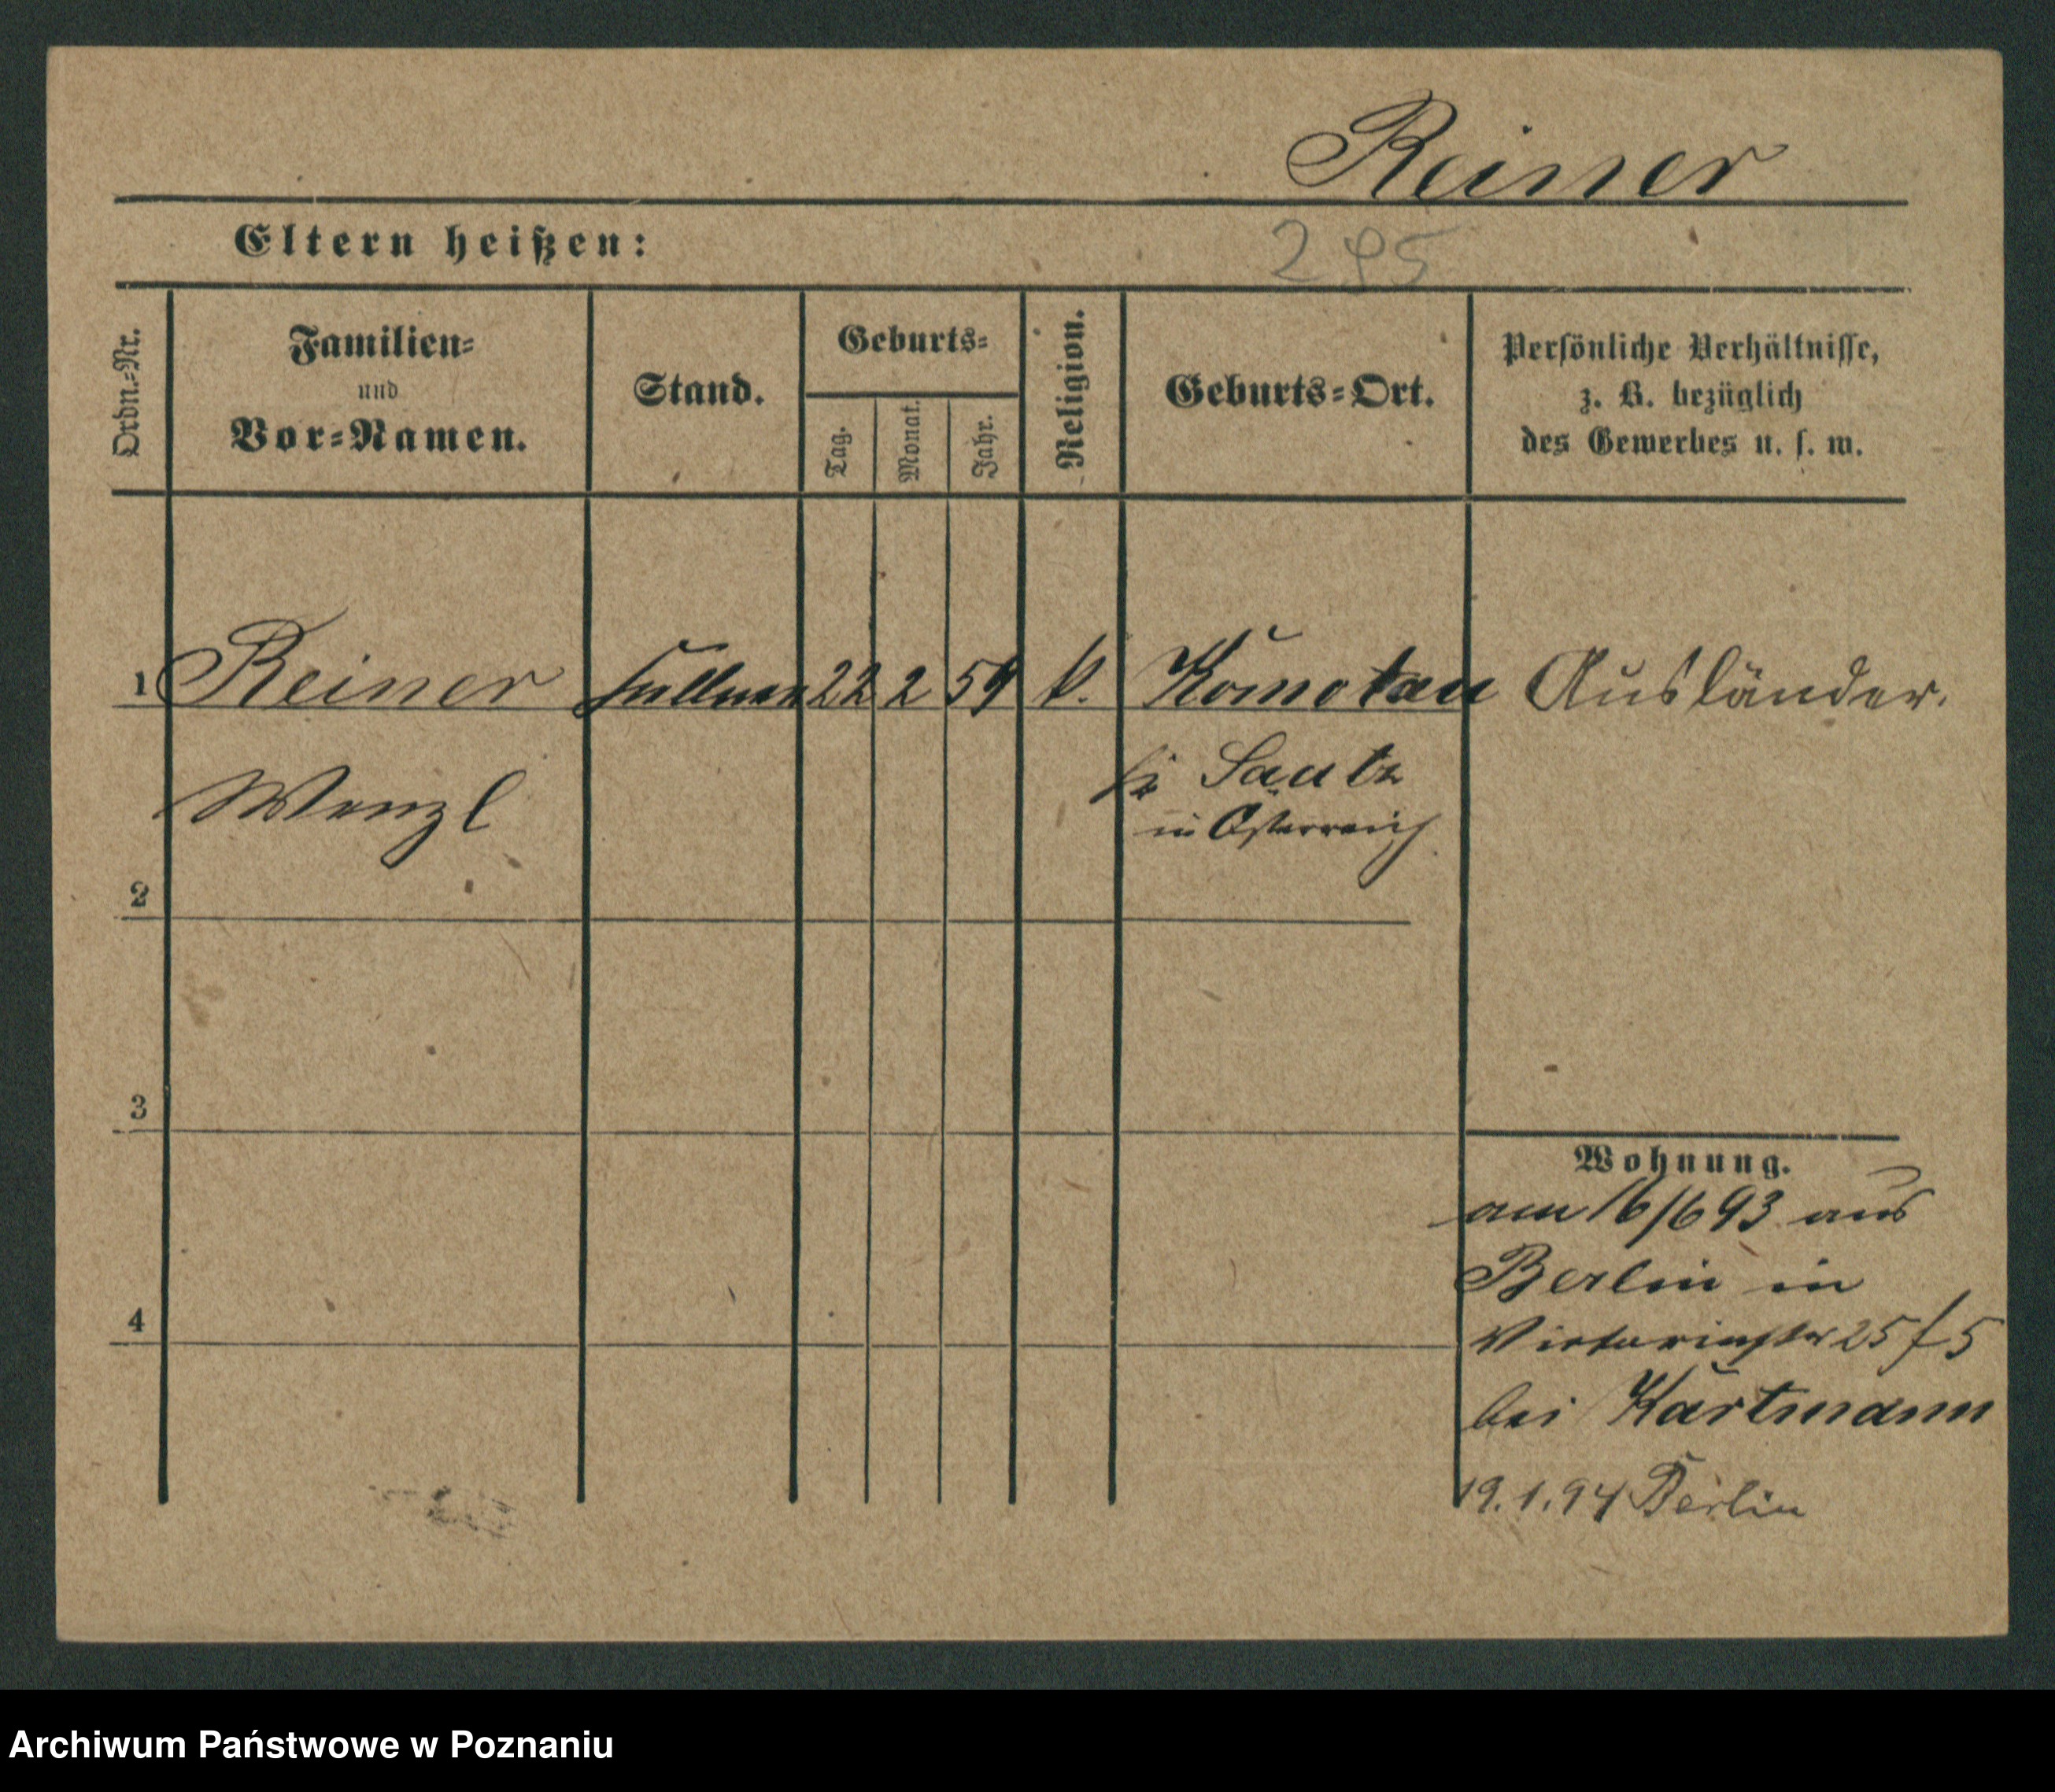 Reiner
Eltern heißen:
295
Ordn.-Nr.
Familien-
und
Vor-Namen.
Stand.
Geburts-
Tag.
Monat.
Jahr.
Religion.
Geburts-Ort.
Persönliche Verhältnisse,
z. B. bezüglich
des Gewerbes u. s. w.
1 Reiner Kellner 22 2 59 k. Komotau Ausländer.
Wenzl
Saatz
in Österreich
2
3
4
Wohnung.
am 16/6 93 aus
Berlin in
Victoriastr 25 f 5
bei Kartmann
19.1.94 Berlin
Archiwum Państwowe w Poznaniu